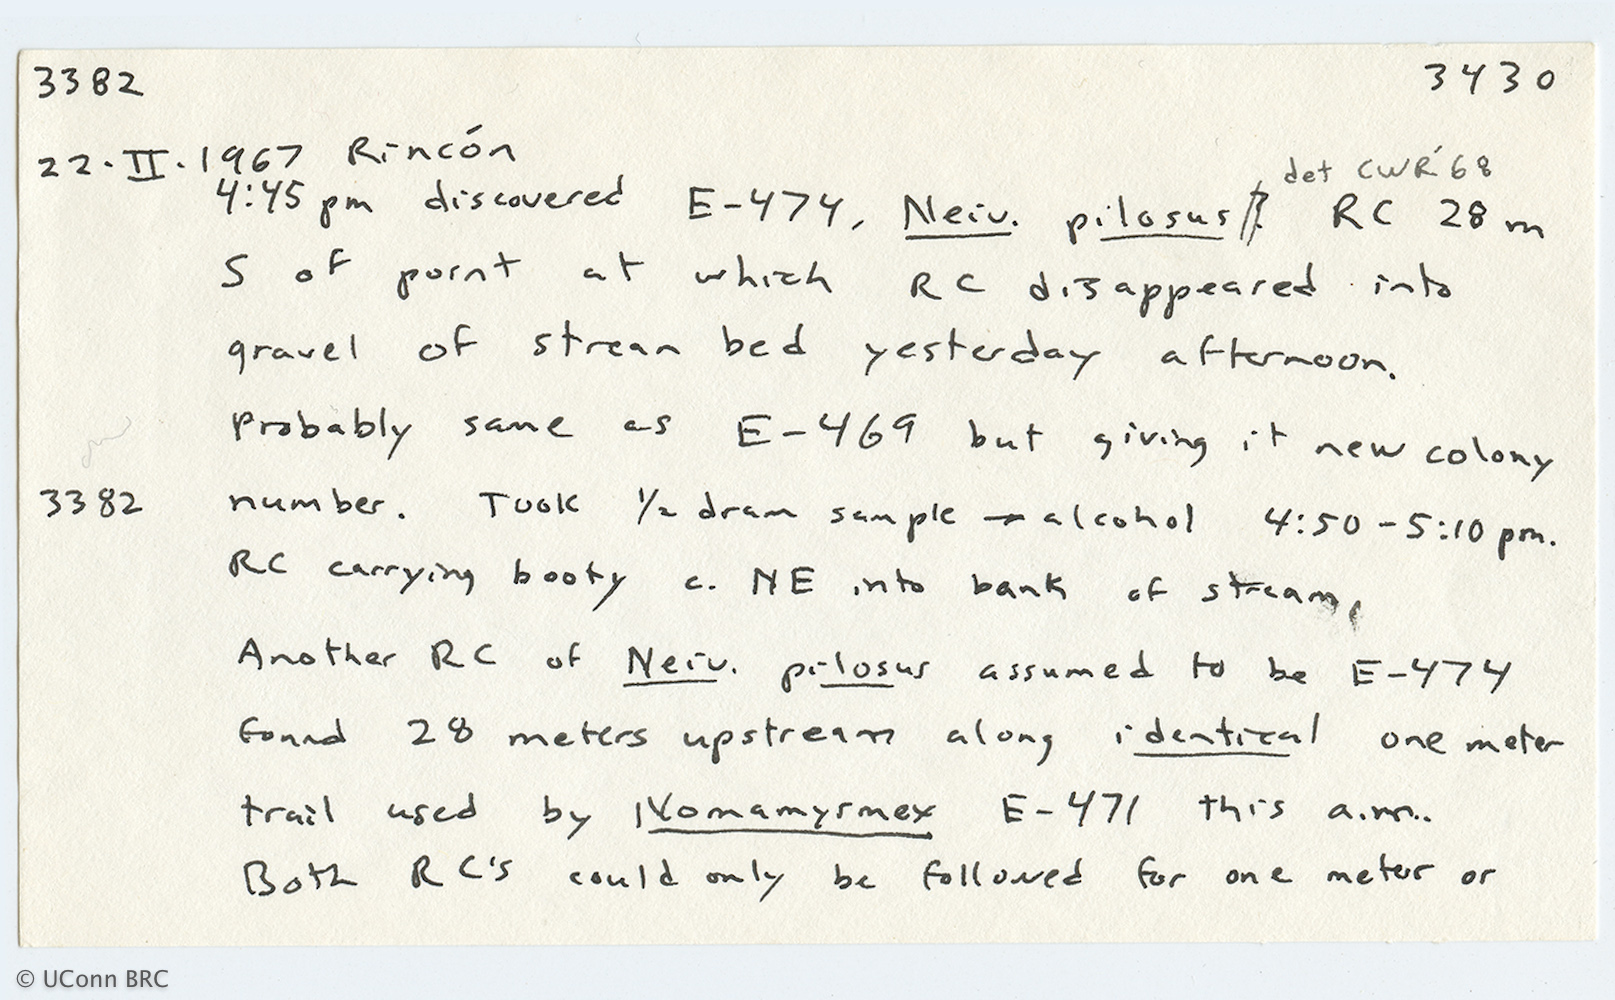 3382 3430
22·II·1967 Rincón
det CWR '68
4:45 pm discovered E-474, Neiv. pilosus?. RC 28 m
S of point at which RC disappeared into
gravel of stream bed yesterday afternoon.
Probably same as E-469 but giving it new colony
3382 number. Took 1/2 dram sample → alcohol 4:50-5:10 pm.
RC carrying booty c. NE into bank of stream,
Another RC of Neiv. pilosus assumed to be E-474
found 28 meters upstream along identical one meter
trail used by Nomamyrmex E-471 this a.m..
Both RC's could only be followed for one meter or
© UConn BRC